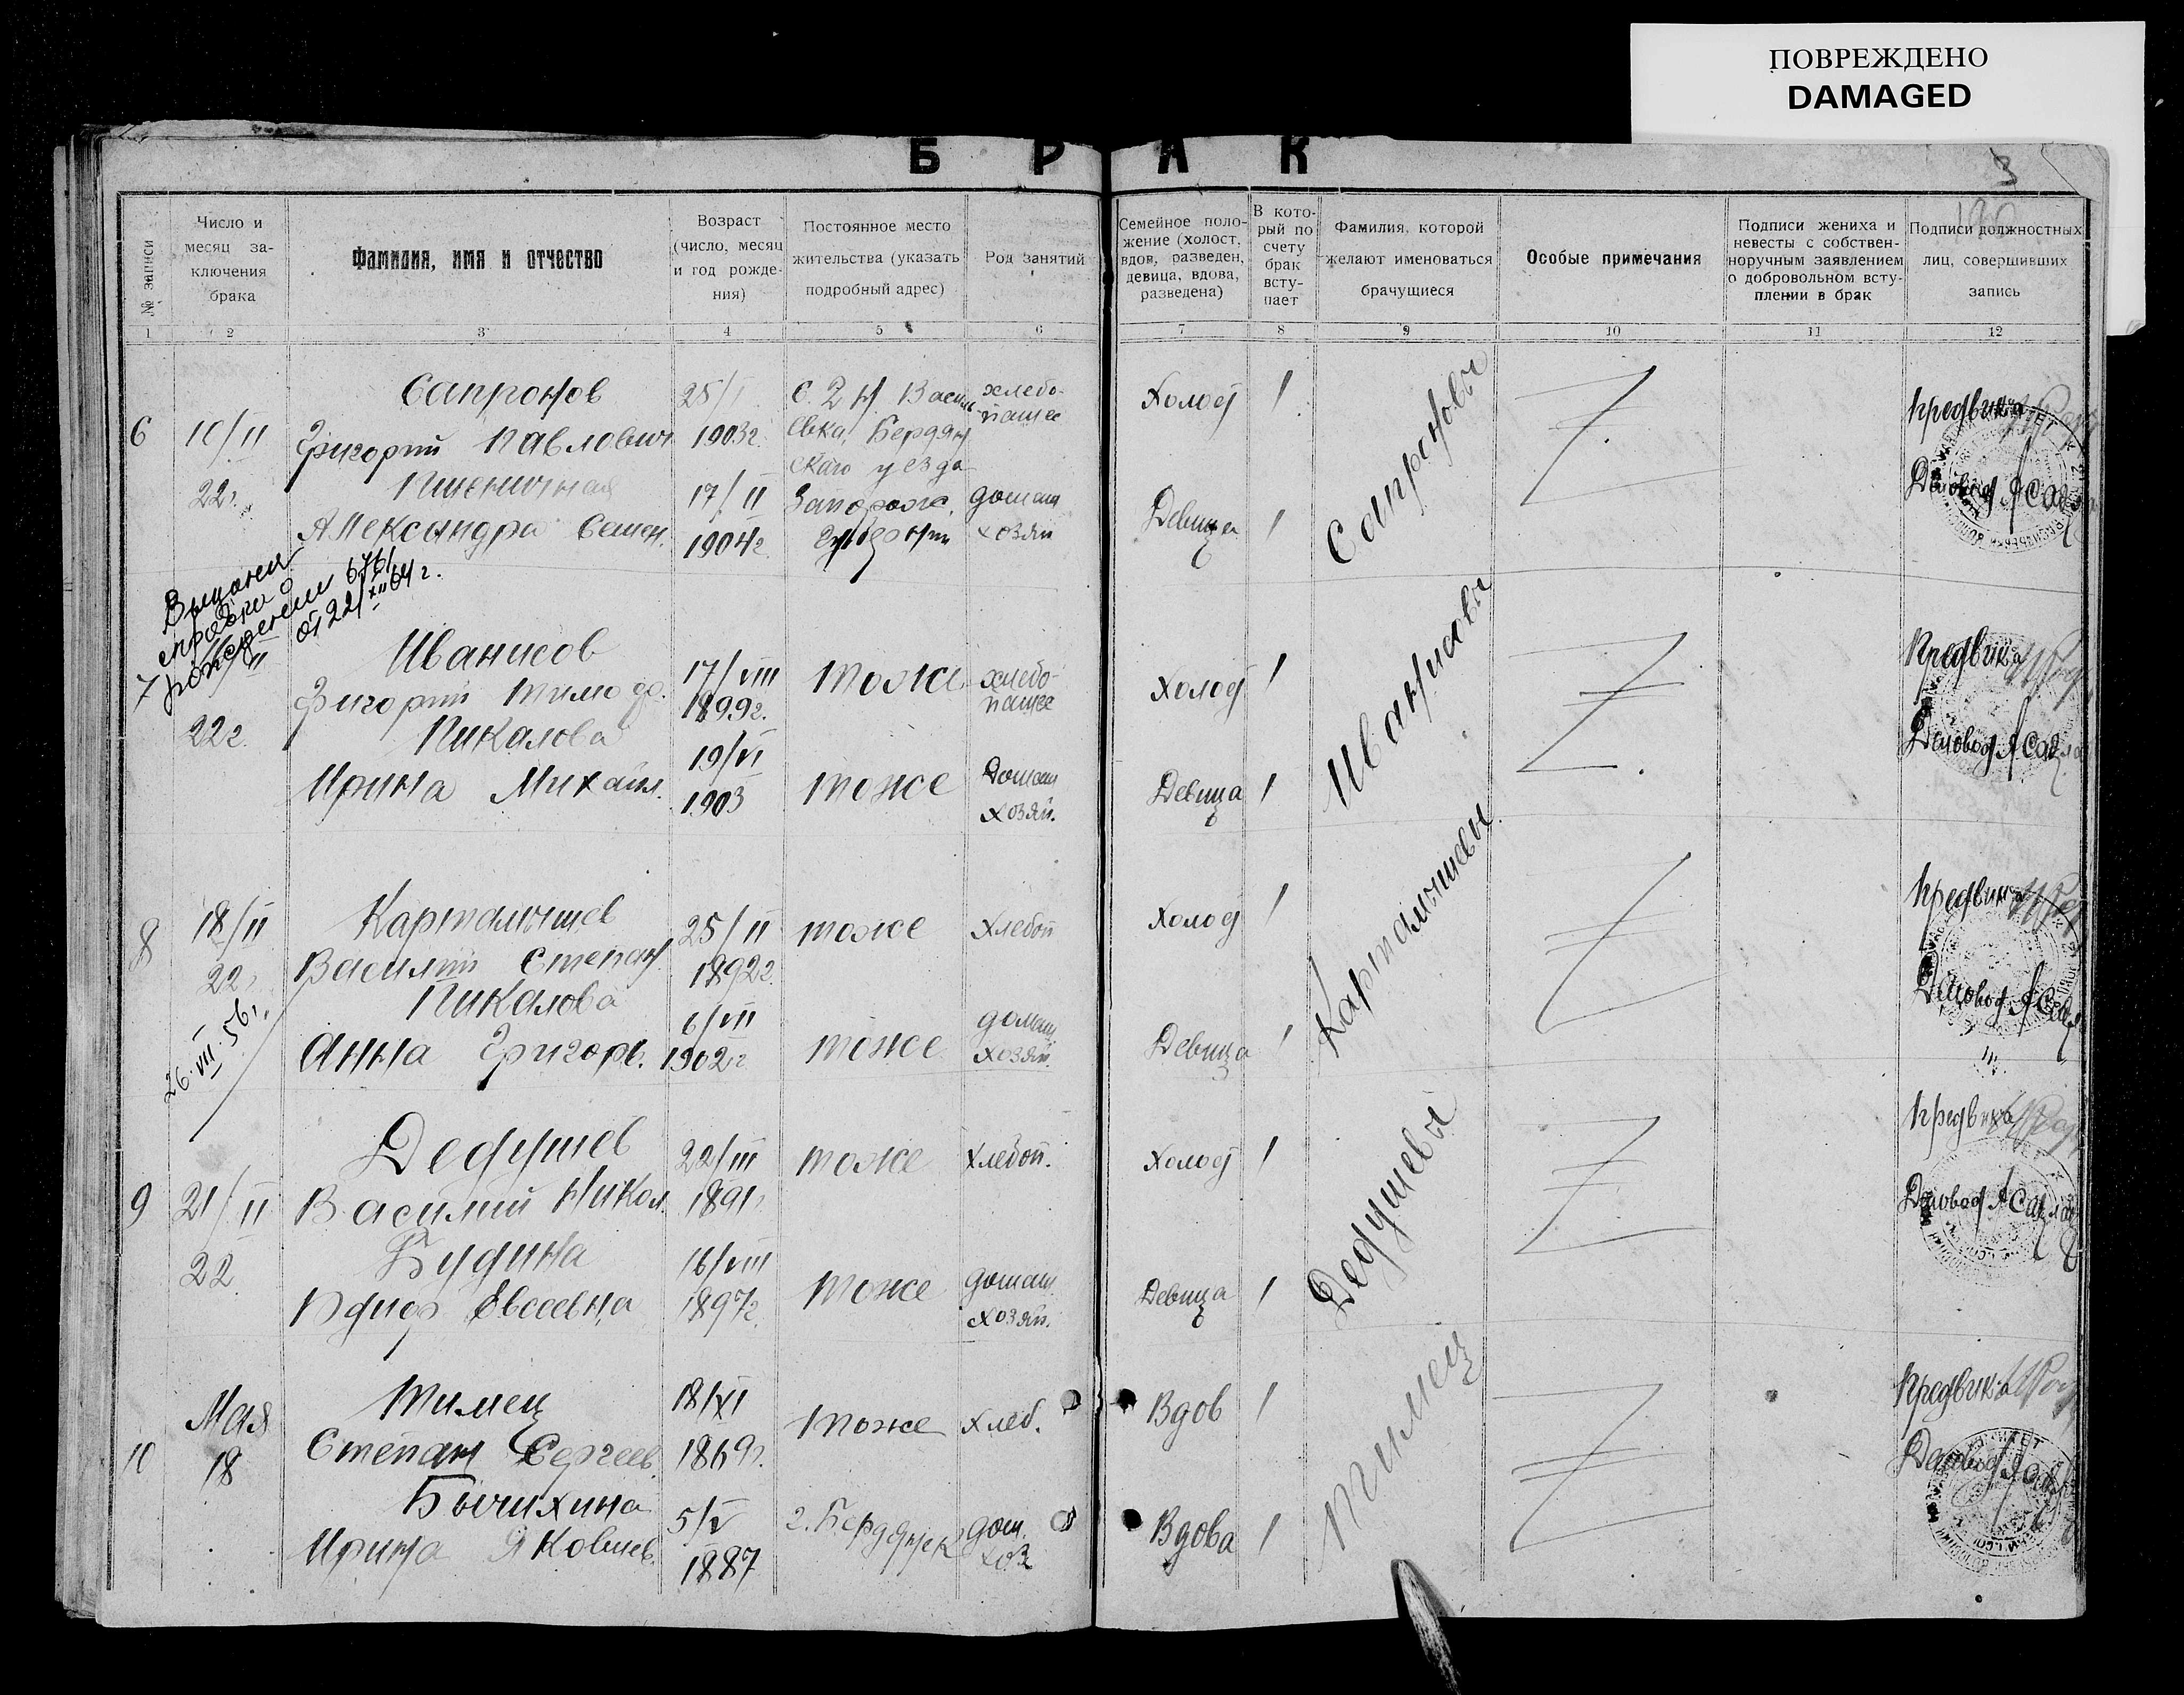 ПОВРЕЖДЕНО
DAMAGED
Б Р А К
3
№ записи
Число и месяц заключения брака
Фамилия, имя и отчество
Возраст (число, месяц и год рождения)
Постоянное место жительства (указать подробный адрес)
Род занятий
Семейное положение (холост, вдов, разведен, девица, вдова, разведена)
В который по счету брак вступает
Фамилия, которой желают именоваться брачущиеся
Особые примечания
Подписи жениха и невесты с собственноручным заявлением о добровольном вступлении в брак
Подписи должностных лиц, совершивших запись
1 2 3 4 5 6 7 8 9 10 11 12
6
10/II
22г.
Сапронов
Григорий Павлович
25/I
1903г.
с. 2 Н Василь
евка, Бердян
ского уезда
хлебо-
пашес
Холост
1
Сапроновы
Предвика
Пшеничная
Александра Семен.
17/II
1904г.
Запорож.
губернии
домаш
хозяй
Девица
1
Деловод
Выдана
справка о
рождении 6761
от 22/XII 64г.
7
22г.
Иванисов
Григорий Тимоф.
17/VIII
1899г.
тоже
хлебо-
пашес
Холост
1
Иванисовы
Предвика
Пикалова
Ирина Михайл.
19/VI
1903
тоже
Домаш
хозяй.
Девица
1
Деловод
8
18/II
22г.
Картамышев
Василий Степан.
25/II
1892г.
тоже
хлебоп
Холост
1
Картамышевы
Предвика
26.VII.56г.
Пикалова
Анна Григорь.
6/VII
1902г
тоже
домаш
хозяй.
Девица
1
Деловод
9
21/II
22
Дедушев
Василий Никол.
22/III
1891г
тоже
хлебоп.
Холост
1
Дедушевы
Предвика
Будина
Евсеевна
16/VIII
1897г.
тоже
домаш.
хозяй.
Девица
1
Деловод
10
Мая
18
Тимец
Степан Сергеев.
18/XI
1869г.
тоже
хлеб.
Вдов
1
Тимец
Предвика
Бычихина
Ирина Яковлев.
5/V
1887
г. Бердянск
дом.
хоз
Вдова
1
Деловод